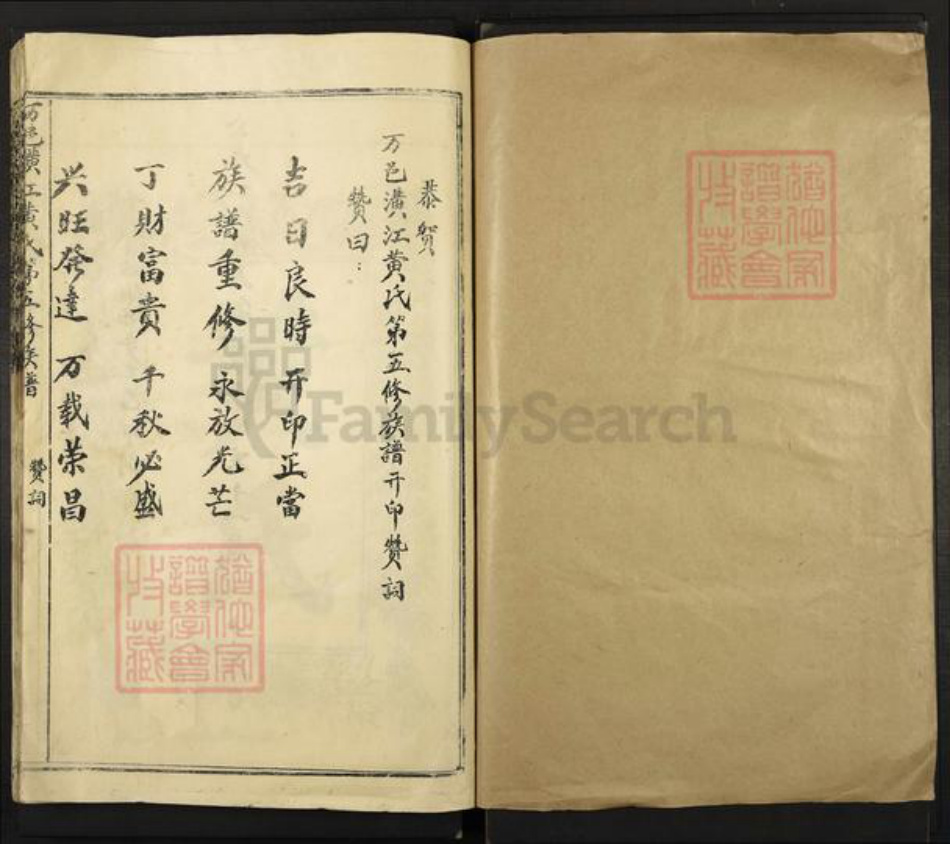 恭贺
万邑潢江黄氏第五修族譜开印赞詞
赞曰：
吉日良時 开印正當
族譜重修 永放光芒
丁財富貴 千秋必盛
兴旺發達 万载荣昌
万邑潢江黄氏第五修族譜 赞詞
譜學會
收藏
譜學會
收藏
FamilySearch